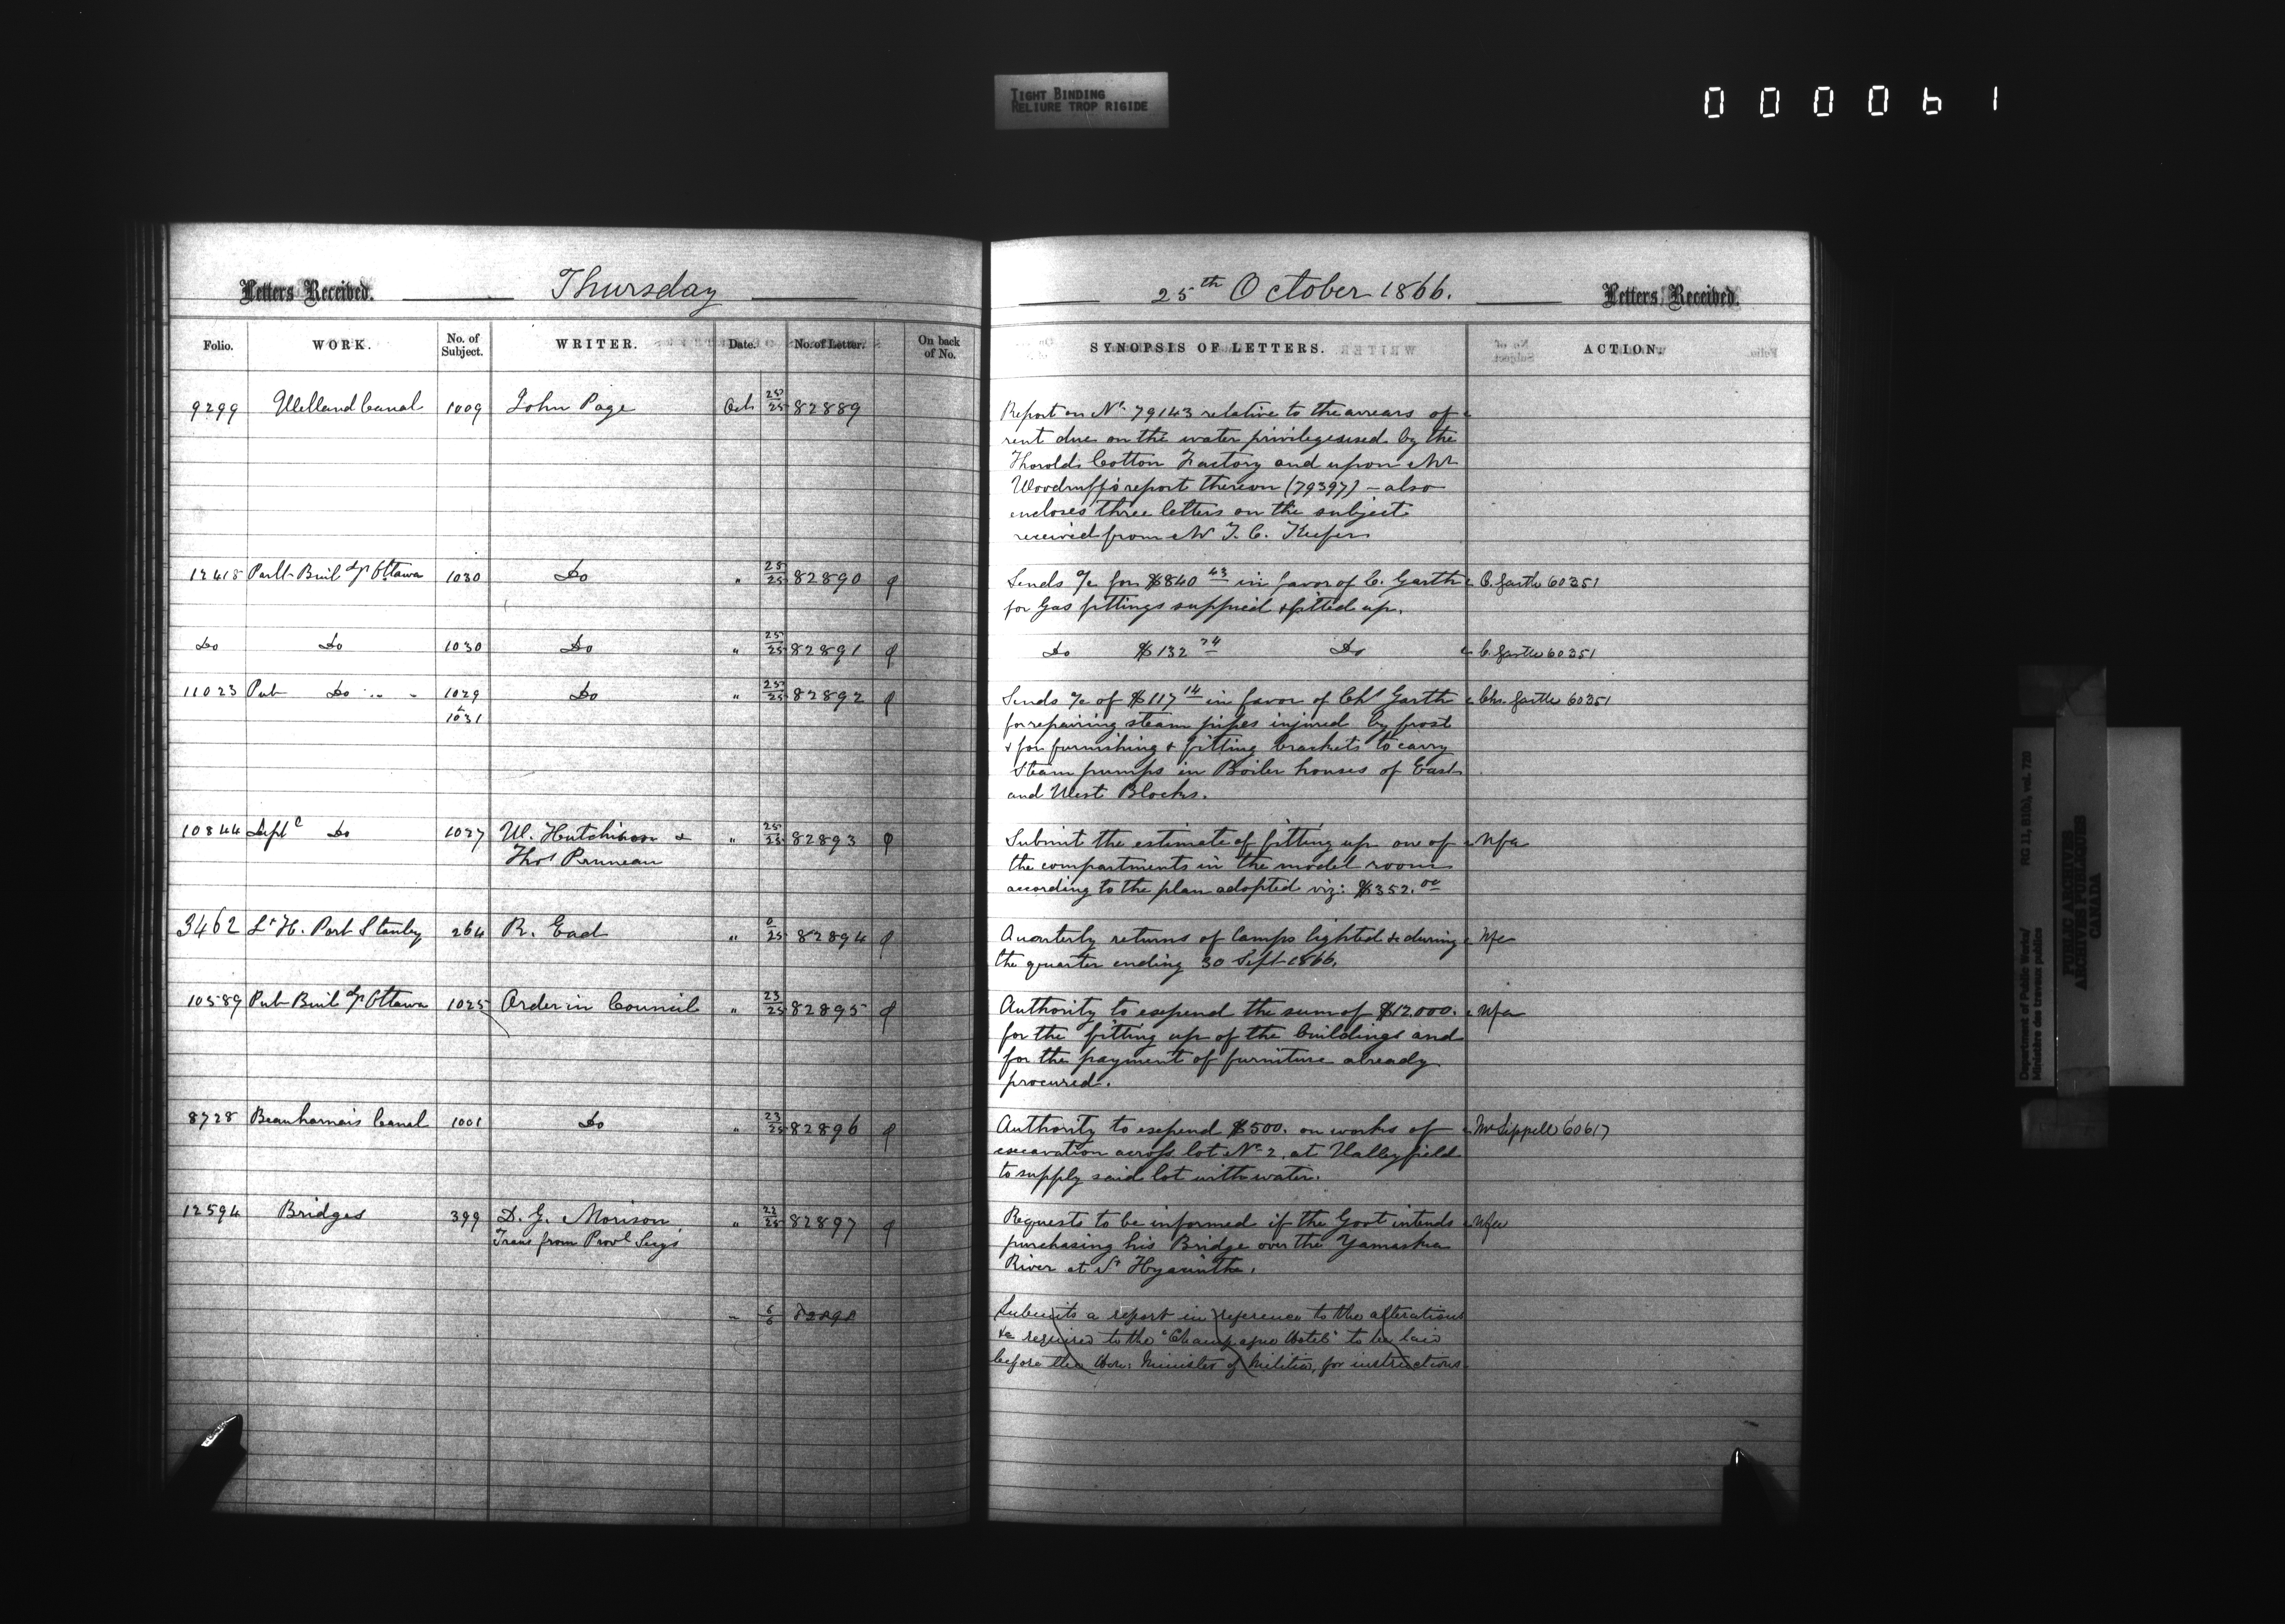 TIGHT BINDING
RELIURE TROP RIGIDE
000061
Letters Received. Thursday
Folio. WORK. No. of Subject. WRITER. Date. No. of Letter. On back of No.
9299 Welland Canal 1009 John Page Oct 25/25 82889
12418 Parlt Buildgs Ottawa 1030 Do " 25/25 82890
Do Do 1030 Do " 25/25 82891
11023 Pub Do " " 1029 Do " 25/25 82892
& 1031
10844 Deptl Do 1027 W. Hutchison & " 25/25 82893
Thos Pruneau
3462 Lt H. Port Stanley 264 R. Ead " 6/25 82894
10589 Pub Buildgs Ottawa 1025 Order in Council " 23/25 82895
8728 Beauharnois Canal 1001 Do " 23/25 82896
12594 Bridges 399 D. G. Morison " 22/25 82897
Trans from Provl Secy's
" 6/6 82898
25th October 1866. Letters Received.
SYNOPSIS OF LETTERS. ACTION.
Report on No 79143 relative to the arrears of
rent due on the water privilege used by the
Thorold Cotton Factory and upon Mr
Woodruff's report thereon (79397) - also
encloses three letters on the subject
received from Mr T. C. Keefer
Sends a/c for $840 43 in favor of C. Garth C. Garth 60351
for Gas fittings supplied & fitted up.
Do $132 74 Do C. Garth 60351
Sends a/c of $117 14 in favor of Chs Garth Chs. Garth 60351
for repairing steam pipes injured by frost
& for furnishing & fitting brackets to carry
steam pumps in Boiler houses of East
and West Blocks.
Submit the estimate of fitting up one of Nfa
the compartments in the model room
according to the plan adopted viz: $352.00
Quarterly returns of lamps lighted &c during Nfa
the quarter ending 30 Sept 1866.
Authority to expend the sum of $12.000. Nfa
for the fitting up of the buildings and
for the payment of furniture already
procured.
Authority to expend $500. on works of Mr Sippell 60617
excavation across lot No 2. at Valleyfield
to supply said lot with water.
Requests to be informed if the Govt intends Nfa
purchasing his Bridge over the Yamaska
River at St Hyacinthe.
Submits a report in reference to the alterations
&c required to the "Champagne Hotel" to be laid
before the Hon: Minister of Militia, for instructions
Department of Public Works/ RG 11, B1(b), vol. 728
Ministère des travaux publics
PUBLIC ARCHIVES
ARCHIVES PUBLIQUES
CANADA